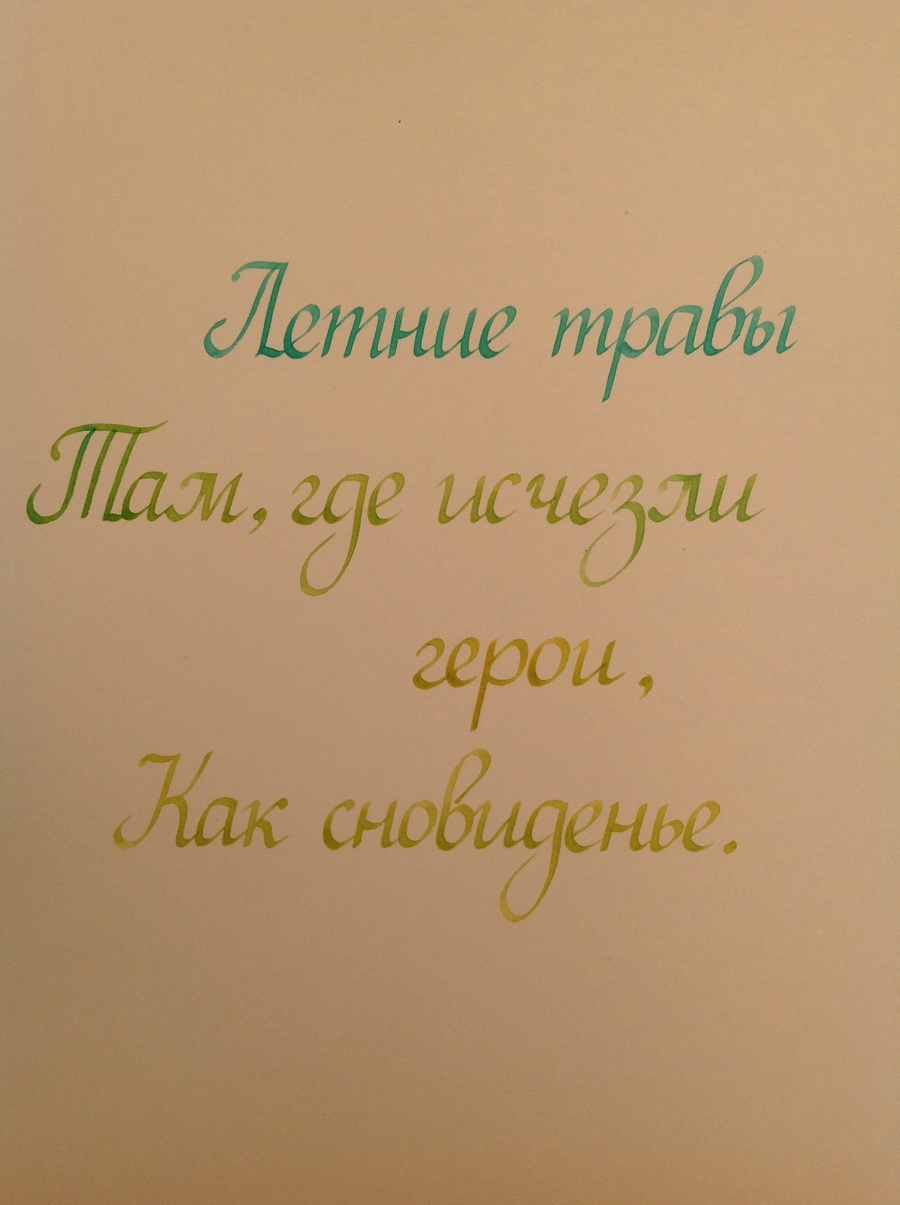 Летние травы
Там, где исчезли
герои,
Как сновиденье.